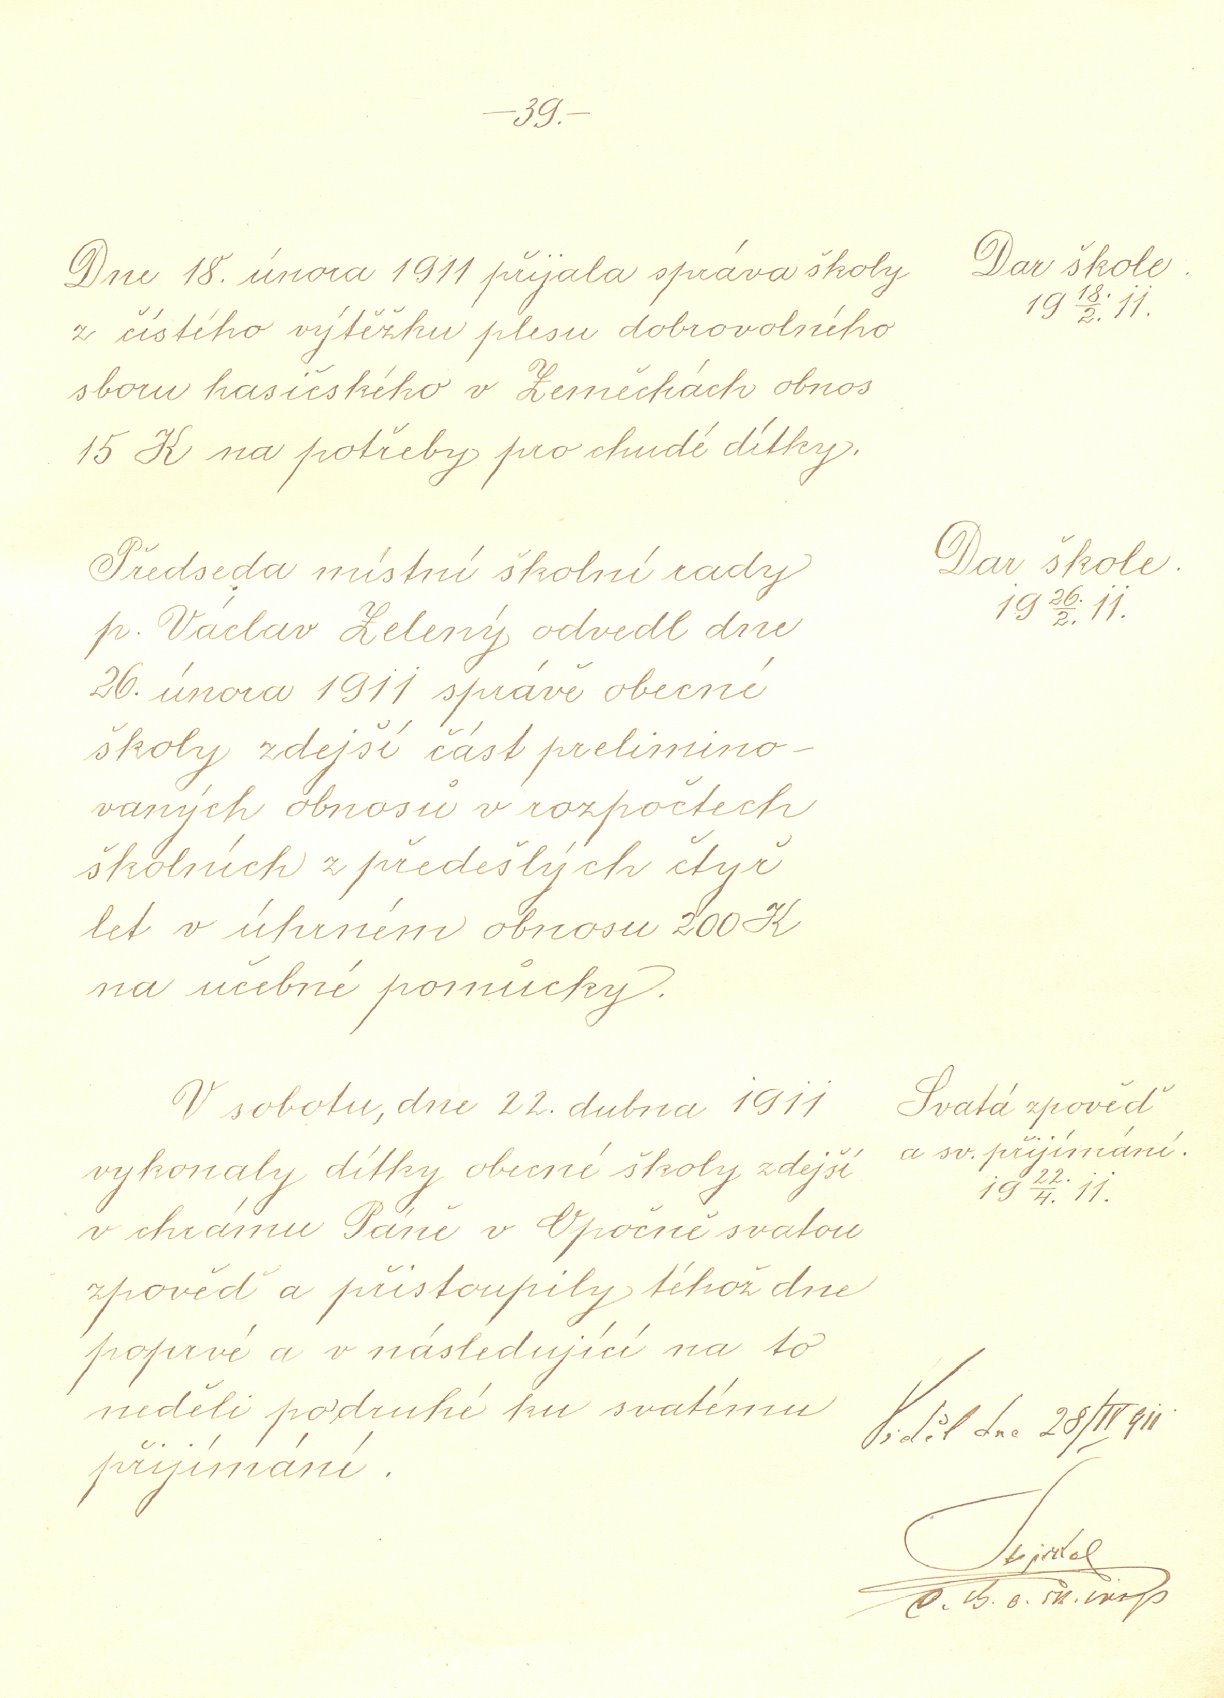 —39.—
Dne 18. února 1911 přijala správa školy
z čistého výtěžku plesu dobrovolného
sboru hasičského v Zeměchách obnos
15 K na potřeby pro chudé dítky.
Dar škole.
19 18./2. 11.
Předseda místní školní rady
p. Václav Zelený odvedl dne
26. února 1911 správě obecné
školy zdejší část prelimino-
vaných obnosů v rozpočtech
školních z předešlých čtyř
let v úhrném obnosu 200 K
na učebné pomůcky.
Dar škole.
19 26./2. 11.
V sobotu, dne 22. dubna 1911
vykonaly dítky obecné školy zdejší
v chrámu Páně v Opočně svatou
zpověď a přistoupily téhož dne
poprvé a v následující na to
neděli podruhé ku svatému
přijímání.
Svatá zpověď
a sv. přijímání.
19 22./4. 11.
Viděl dne 28/IV 911
c. k. o. šk. insp